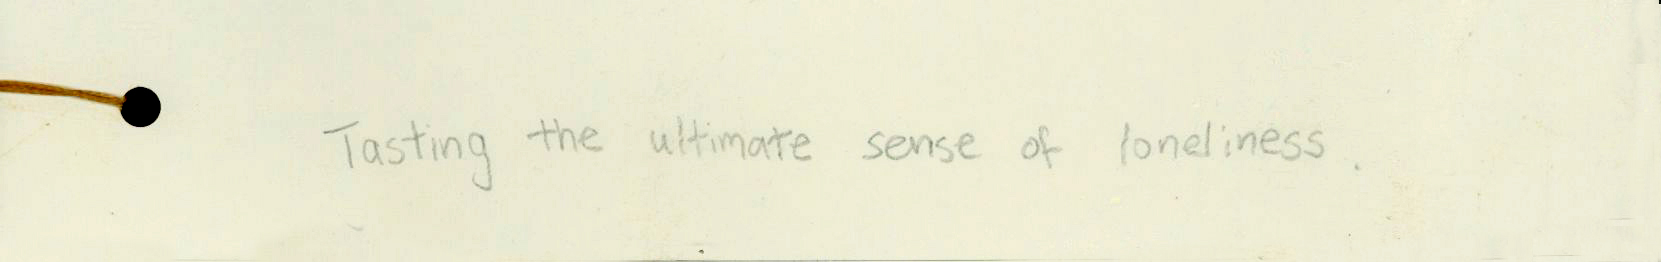 Tasting the ultimate sense of loneliness.